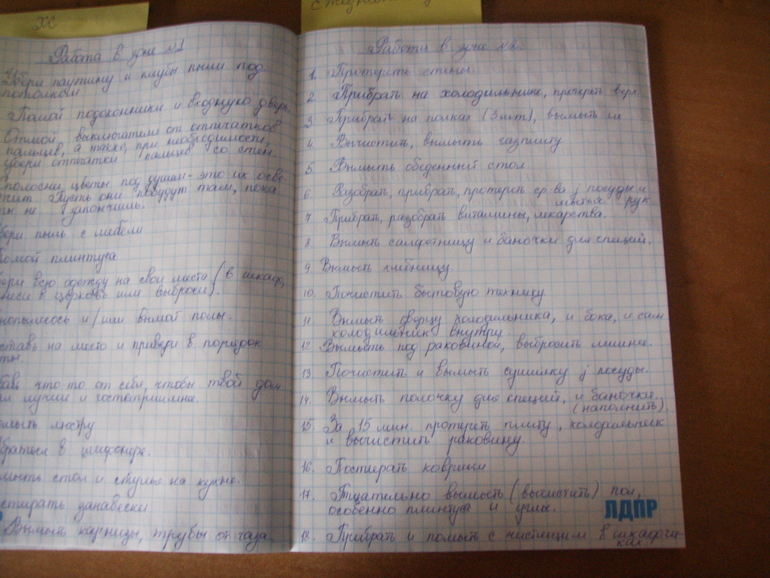 ХС
Работа в зоне №1
Убери паутину и клубы пыли под
потолком
Помой подоконники и входную дверь
Отмой выключатели от отпечатков
пальцев, а также, при необходимости,
убери отпечатки пальцев со стен.
цветы под душем - это их осве-
жит. Пусть они побудут там, пока
ты не закончишь.
пыль с мебели
помой плинтуса
всю одежду на свои места (в шкаф,
в церковь или выброси).
и/или вымой полы.
на место и приведи в порядок
что-то от себя, чтобы твой дом
лучше и гостеприимнее.
люстру
в шифонере.
стол и стулья на кухне.
занавески
Вымыть карнизы, трубы от газа
Работа в зоне №2.
1. Протереть стены
2. Прибрать на холодильнике, протереть верх
3. Прибрать на полках (3 шт), вымыть их
4. Вычистить, вымыть газплиту
5. Вымыть обеденный стол
6. Разобрать, прибрать, протереть ср-ва д/посуды и
мытья рук
7. Прибрать, разобрать витамины, лекарства.
8. Вымыть салфетницу и баночки для специй.
9. Вымыть хлебницу.
10. Почистить бытовую технику
11. Вымыть сверху холодильника, и бока, и сам
холодильник внутри
12. Вымыть под раковиной, выбросить лишнее.
13. Почистить и вымыть сушилку д/посуды.
14. Вымыть полочку для специй, и баночки.
(наполнить)
15. За 15 мин. протереть плиту, холодильник
и вычистить раковину.
16. Постирать коврики
17. Тщательно вымыть (вычистить) пол,
особенно плинтуса и углы.
ЛДПР
18. Прибрать и помыть с чистящим в шкафчи-
ках